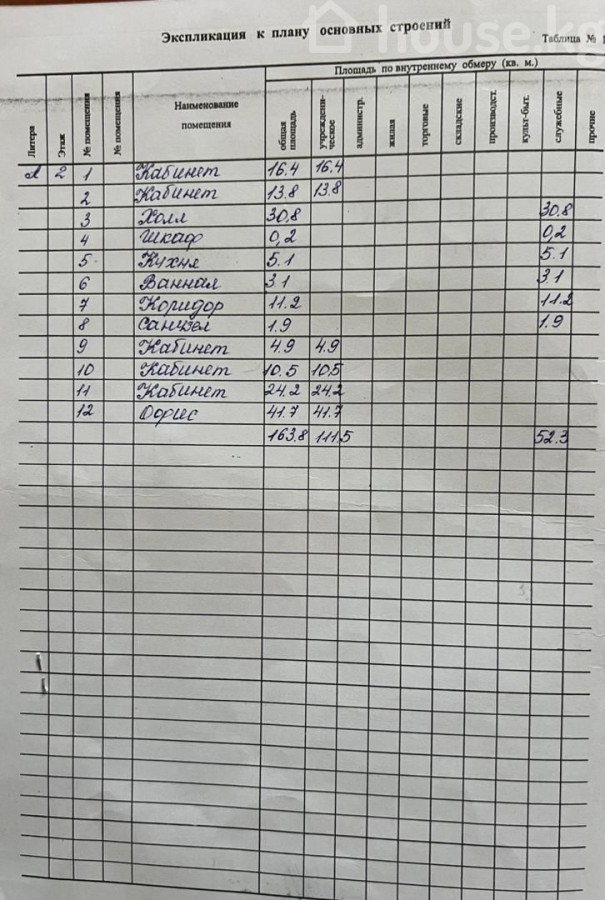 house.kg
Экспликация к плану основных строений
Таблица № 1
Литера Этаж № помещения № помещения Наименование помещения Площадь по внутреннему обмеру (кв. м.)
общая площадь учрежденическое администр. жилая торговые складские производст. культ-быт. служебные прочие
А 2 1 Кабинет 16.4 16.4
2 Кабинет 13.8 13.8
3 Холл 30.8 30.8
4 Шкаф 0,2 0,2
5 Кухня 5.1 5.1
6 Ванная 3.1 3.1
7 Коридор 11.2 11.2
8 Санузел 1.9 1.9
9 Кабинет 4.9 4.9
10 Кабинет 10.5 10,5
11 Кабинет 24.2 24.2
12 Офис 41.7 41.7
163.8 111.5 52.3